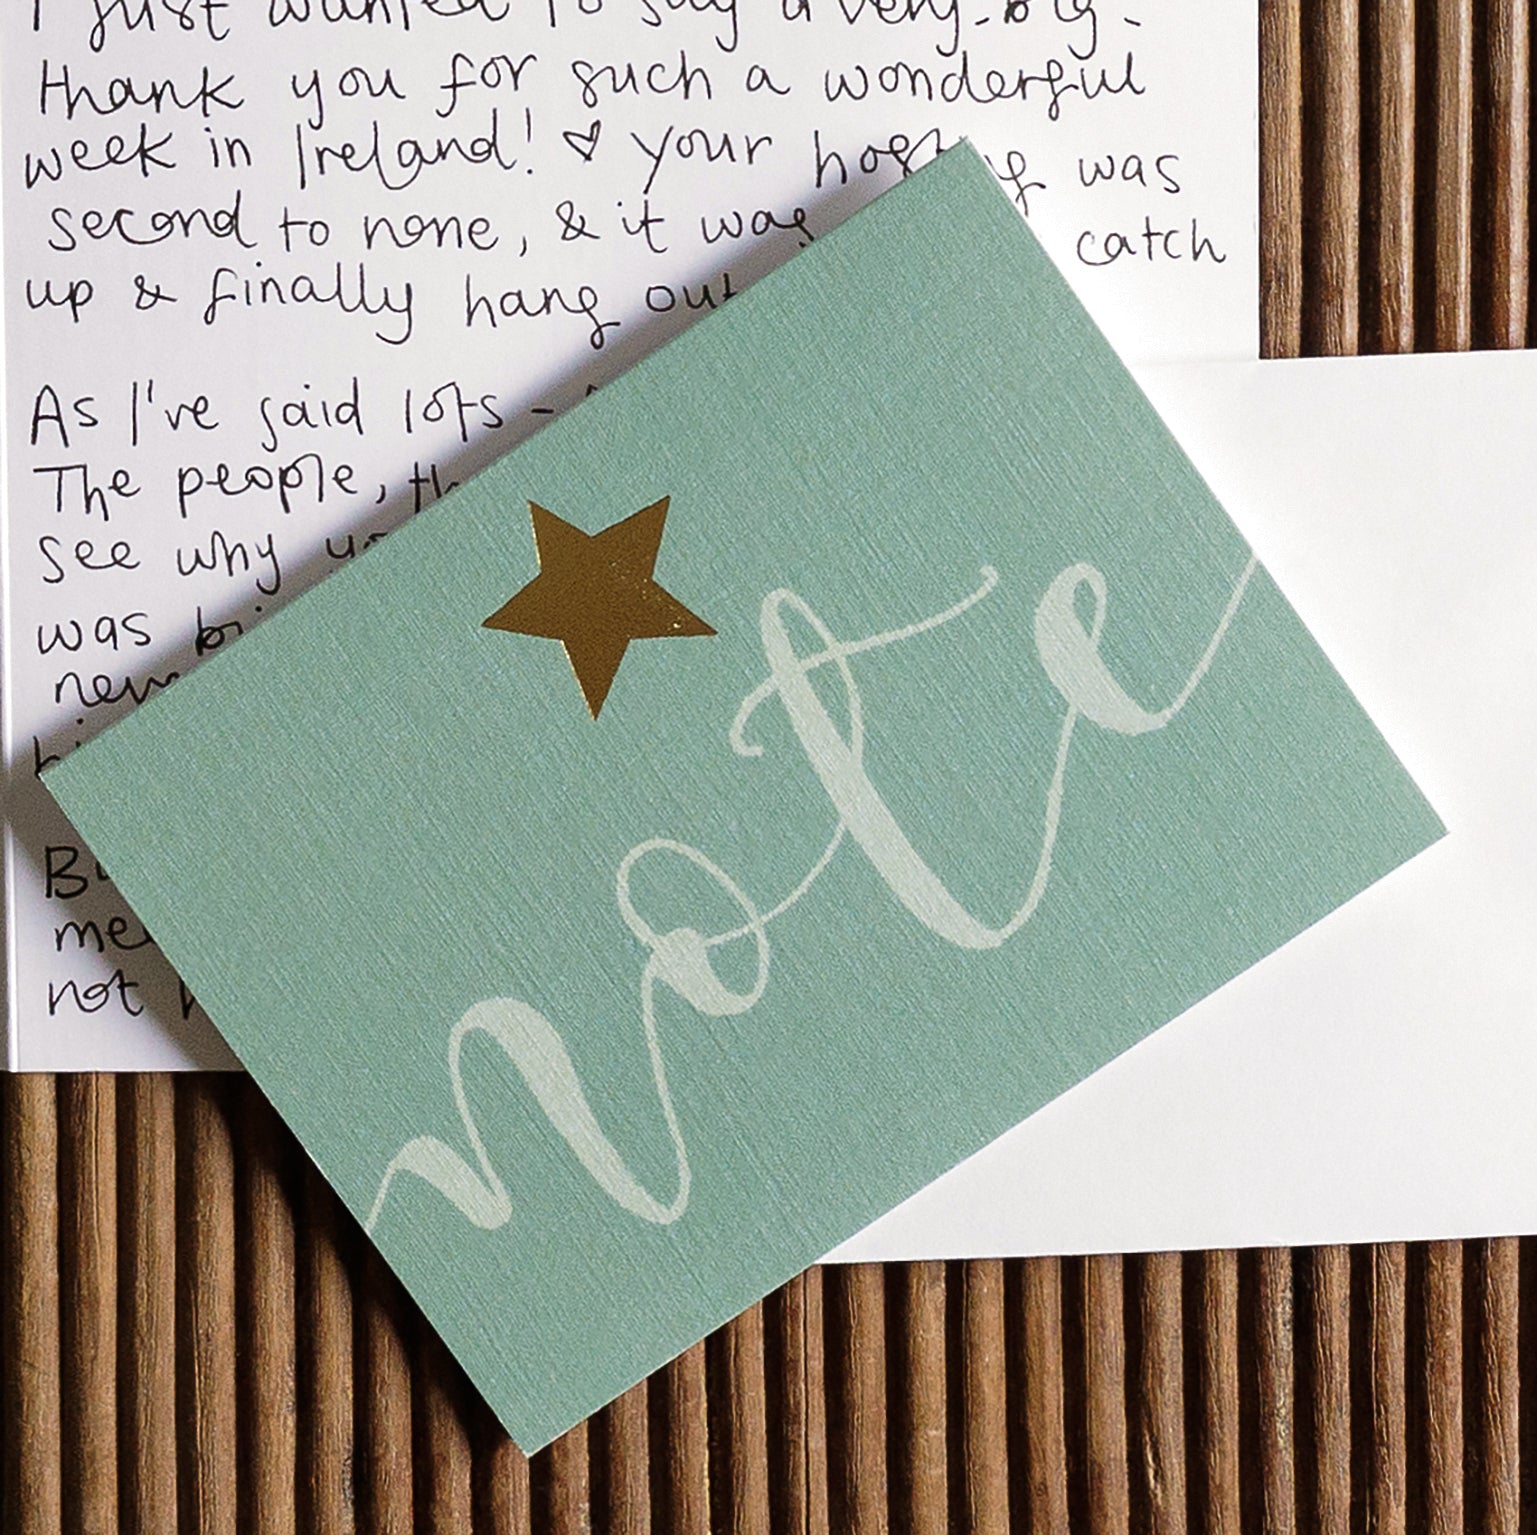 I just wanted to say a very-big-
thank you for such a wonderful
week in Ireland! ♡ your hosting was
second to none, & it was catch
up & finally hang out
As I've said lots -
The people,
see why
was
not
note